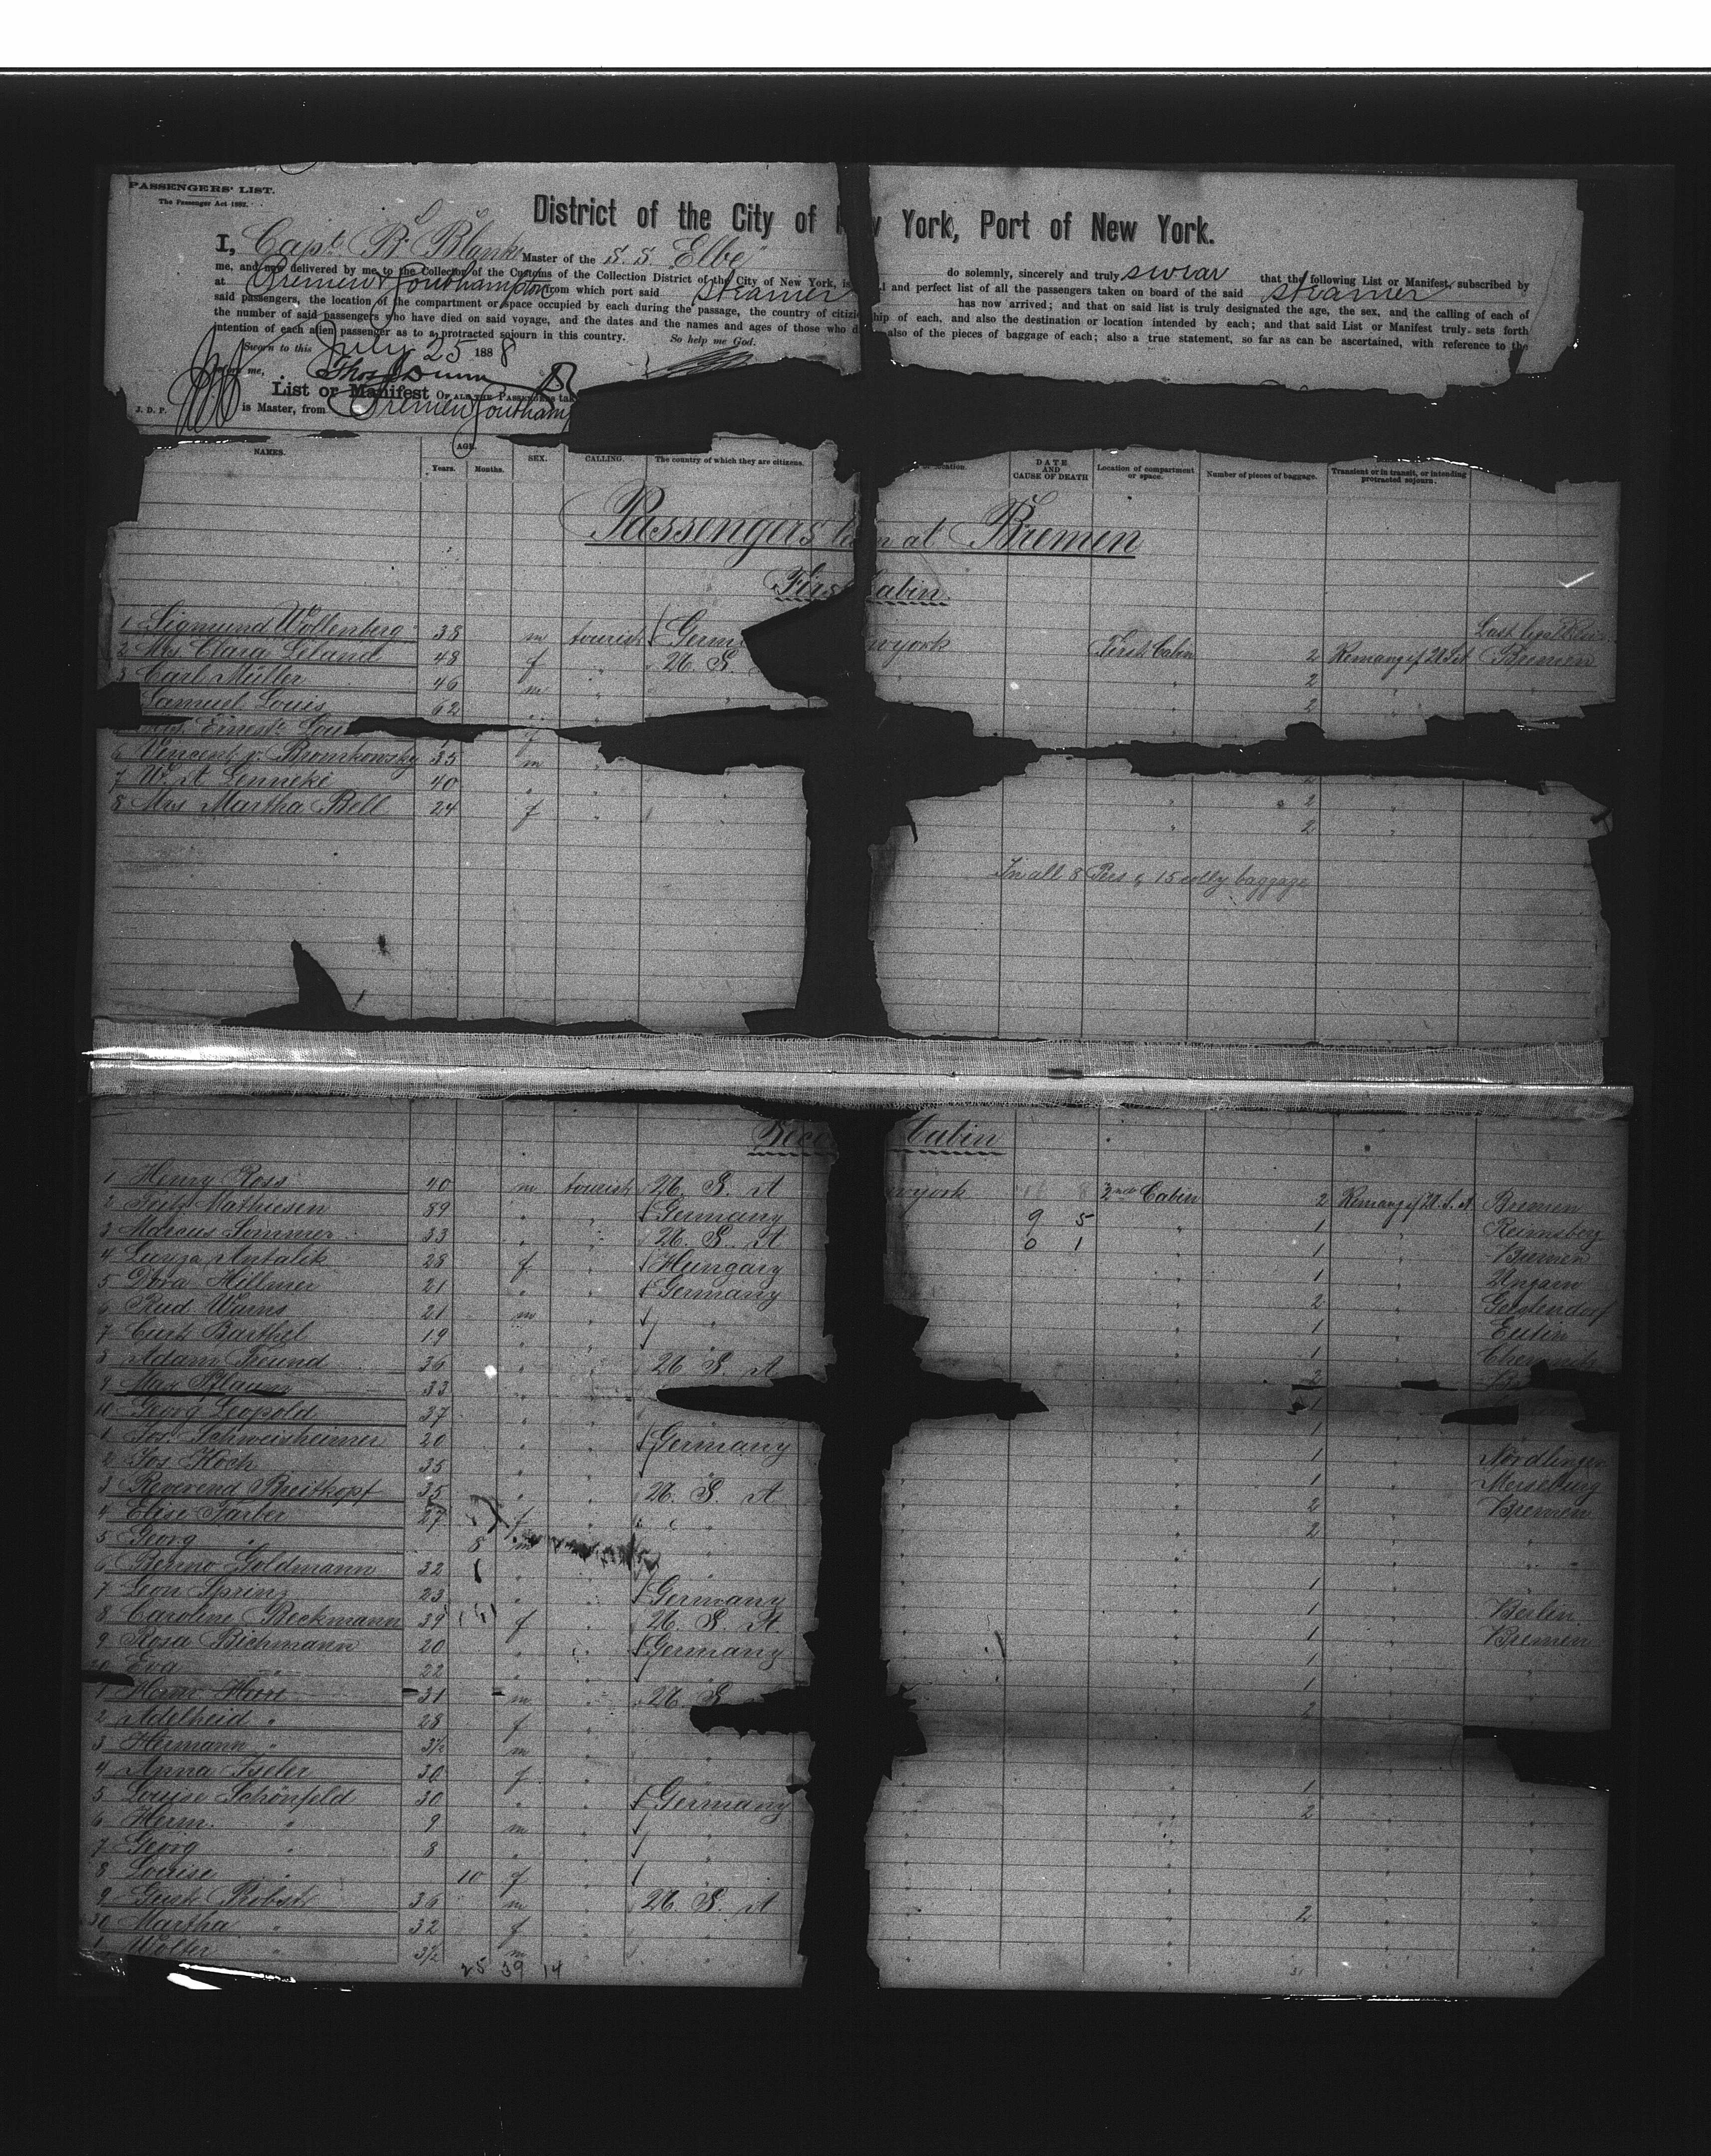 PASSENGERS' LIST.
The Passenger Act 1882.
District of the City of New York, Port of New York.
I, Capt. B. Blanke Master of the S. S. "Elbe" do solemnly, sincerely and truly swear that the following List or Manifest, subscribed by
me, and now delivered by me to the Collector of the Customs of the Collection District of the City of New York, is and perfect list of all the passengers taken on board of the said steamer
at Bremen & Southampton from which port said steamer has now arrived; and that on said list is truly designated the age, the sex, and the calling of each of
said passengers, the location of the compartment or space occupied by each during the passage, the country of citizenship of each, and also the destination or location intended by each; and that said List or Manifest truly sets forth
the number of said passengers who have died on said voyage, and the dates and the names and ages of those who d also of the pieces of baggage of each; also a true statement, so far as can be ascertained, with reference to the
intention of each alien passenger as to a protracted sojourn in this country. So help me God.
Sworn to this July 25 1888
me,
List or Manifest OF ALL THE PASSENGERS tak
J. D. P. is Master, from Bremen Southam
NAMES. AGE. Years. Months. SEX. CALLING. The country of which they are citizens. location. DATE AND CAUSE OF DEATH Location of compartment or space. Number of pieces of baggage. Transient or in transit, or intending protracted sojourn.
Passengers n at Bremen
First Cabin
Last legal
1 Sigmund Wollenberg 38 m tourist Germ york First Cabin 2 Bremen
2 Mrs Clara Leland 48 f " U. S. " 2 "
3 Carl Müller 46 m " " " 2 "
Samuel Louis 62 " " "
Mrs. Ernest. Lou f
6 Vincent v. Bronikowsky 35 m "
7 W. A. Lenneke 40 " " " 2 "
8 Mrs Martha Bell 24 f " " 2 "
In all 8 Pers & 15 colly baggage
Second Cabin
1 Henry Ross 40 m tourist U. S. A york 2nd Cabin 2 Bremen
2 Fritz Mathiesen 39 " " Germany 9 5 " 1 " Reimsberg
3 Marcus Sommer 33 " " U. S. A 0 1 " 1 " Bremen
4 Antalik 28 f " Hungary " 1 " Ungarn
5 Dora Hillmer 21 " " Germany " 2 " Geestendorf
6 Rud Warns 21 m " " " 1 " Eutin
7 Curt Barthel 19 " " " " 1 " Chemnitz
8 Adam Freund 36 " " U. S. A " 2
9 Max Pflaum 33 " " 1
10 Georg Leopold 37 " " 1
1 Jos. Schweisheimer 20 " " Germany " 1 " Nördlingen
2 Jos Hoch 35 " " " " 1 " Merseburg
3 Reverend Breitkopf 35 " " U. S. A " 2 " Bremen
4 Elise Farber 27 f " " " 2 " "
5 Georg " 8 m " " "
6 Benno Goldmann 32 " " " " 1 " "
7 Leon Spring 23 " " Germany " 1 " Berlin
8 Caroline Beckmann 39 f " U. S. A. " 1 " Bremen
9 Rosa Bichmann 20 " " Germany " 1 " "
20 Eva " 22 " " " " 1 " "
1 31 m " U. S. 2
2 Adelheid " 28 f " "
3 Hermann " 3½ m " "
4 Anna Iseler 30 f " " 1 "
5 Louise Schönfeld 30 " " Germany " 2 " "
6 Herm. " 9 m " " " " "
7 Georg " 8 " " " " " "
8 Louise " 10 f " " " " "
9 Gust Probst 36 m " U. S. A " 2 " "
30 Martha " 32 f " " " " "
1 Wolter " 3½ m " " " " "
25 39 14
31